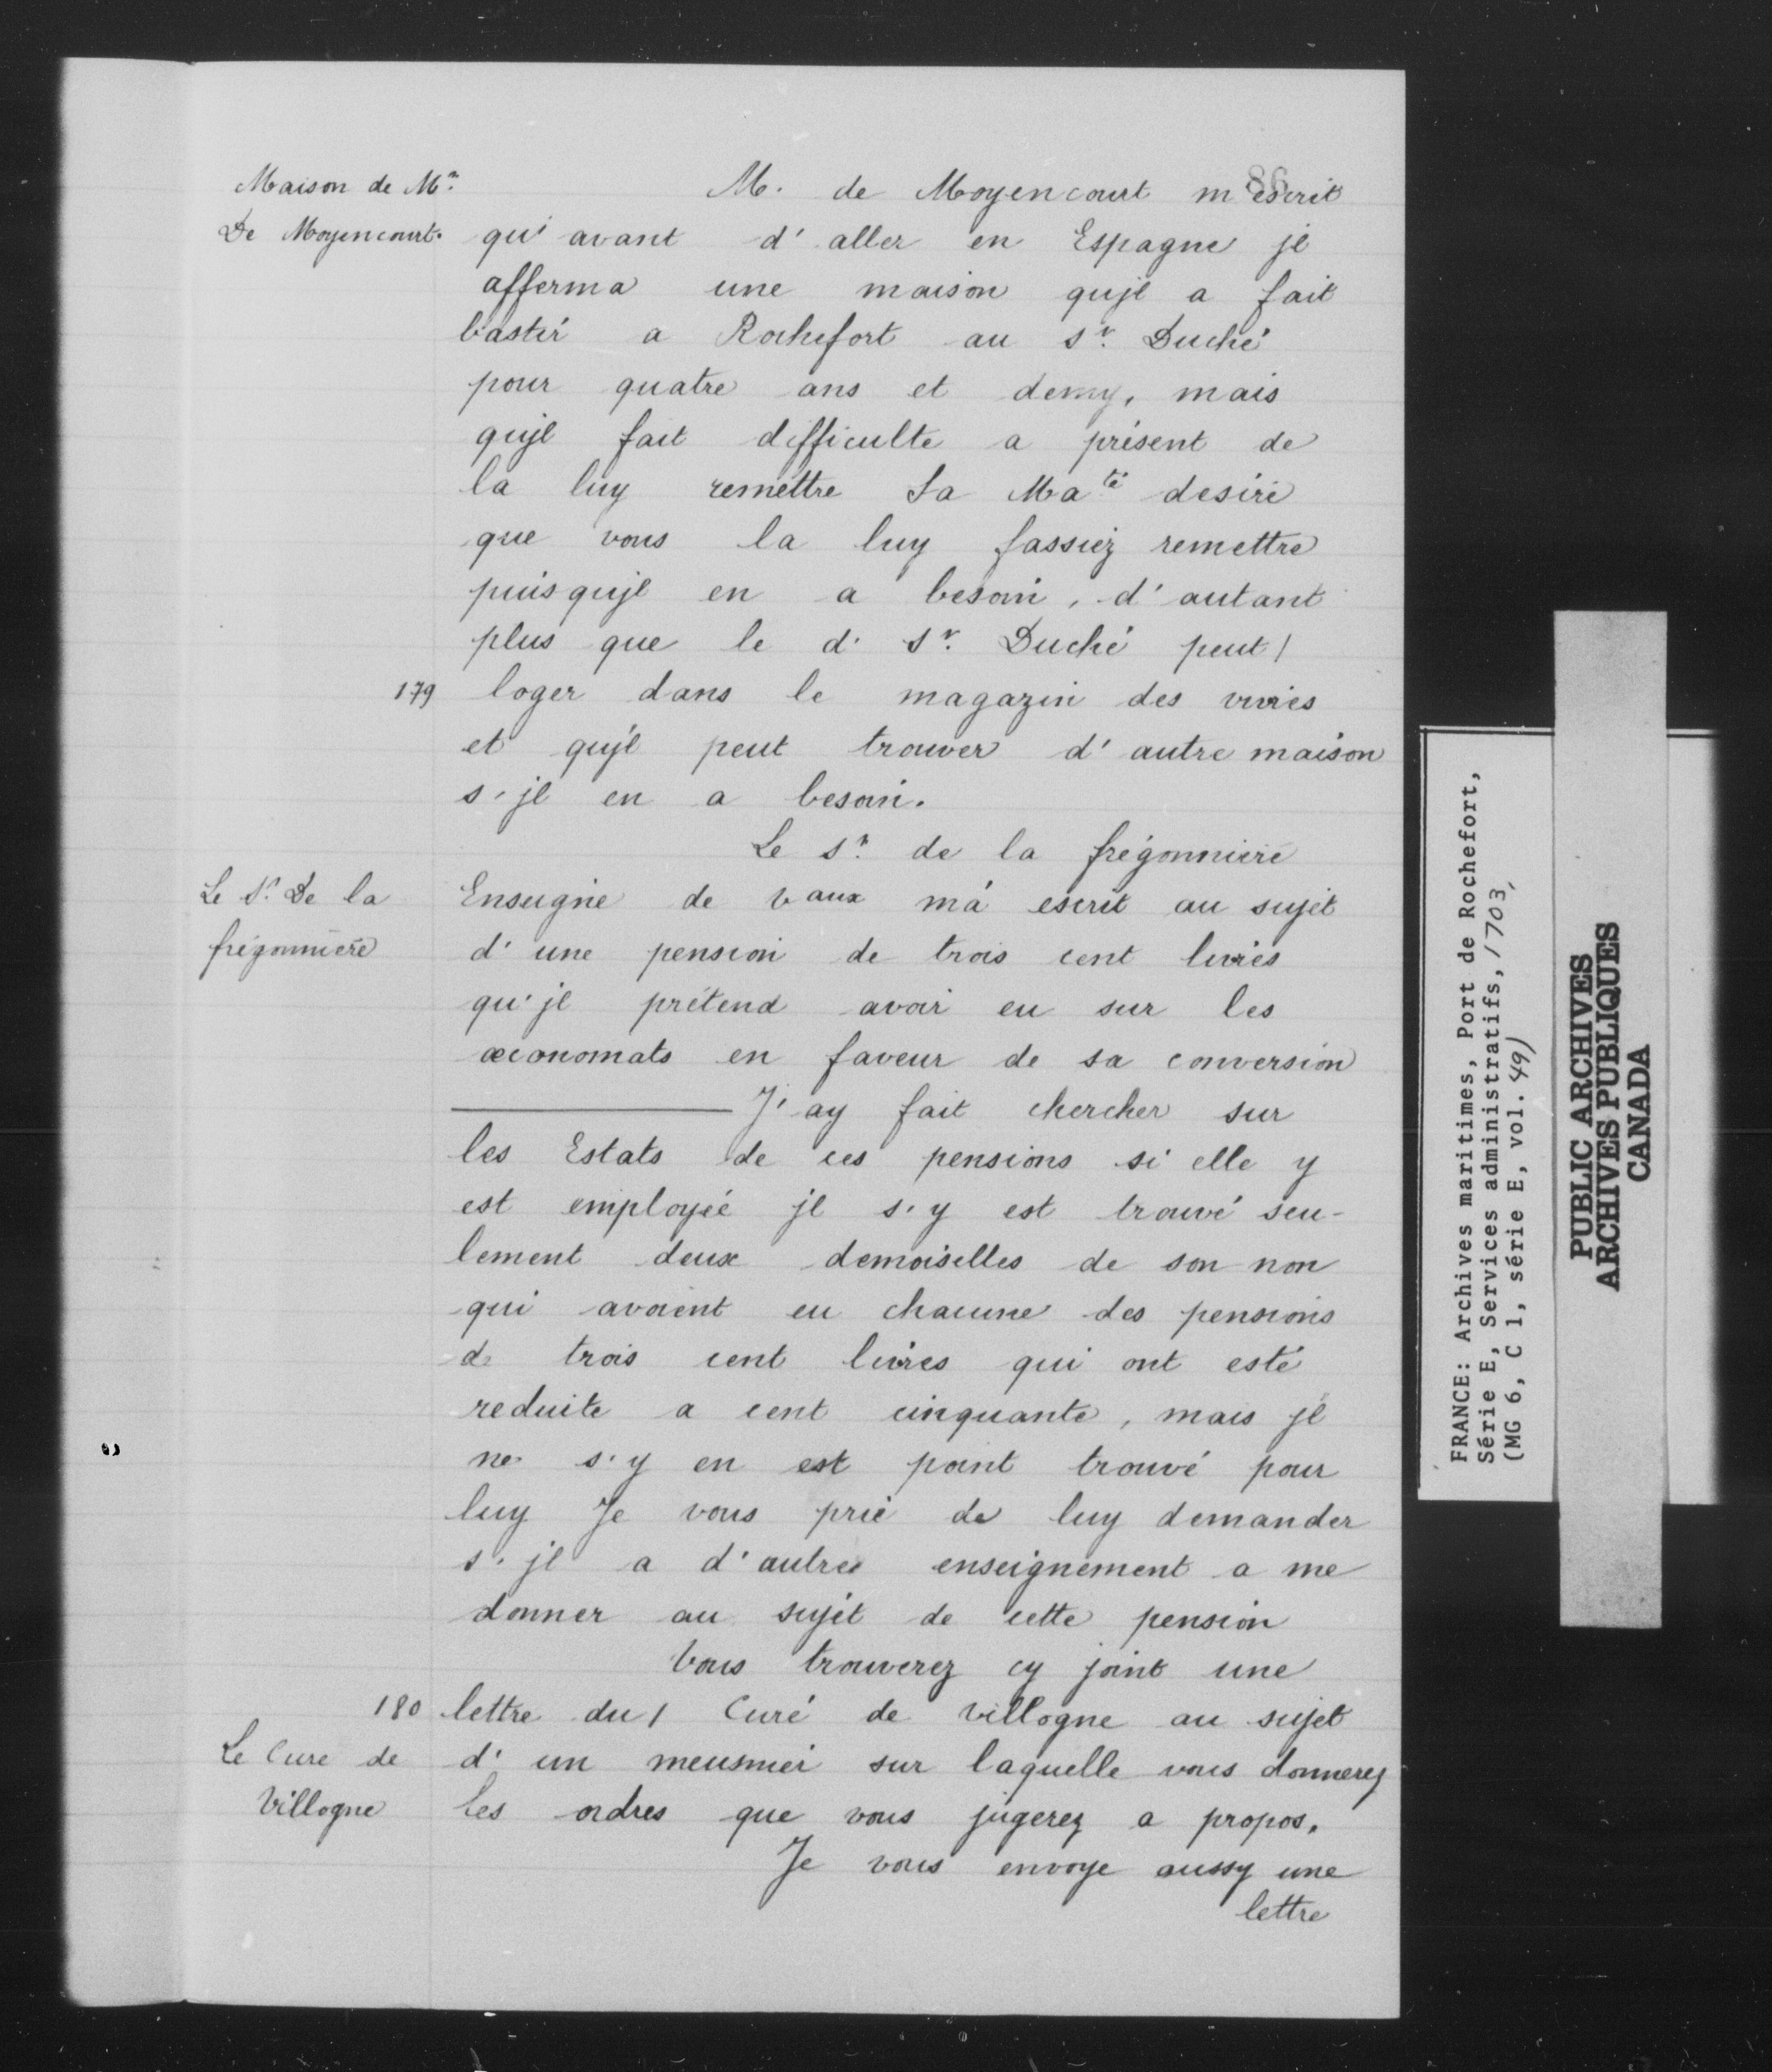 86
Maison de Mr.
De Moyencourt.
M. de Moyencourt m'escrit
qu'avant d'aller en Espagne jl
afferma une maison qujl a fait
bastir a Rochefort au sr. Duché
pour quatre ans et demy, mais
qujl fait difficulté a présent de
la luy remettre Sa Maté desire
que vous la luy fassiez remettre
puisqujl en a besoin, d'autant
plus que le d. Sr. Duché peut/
179 loger dans le magazin des vivres
et qujl peut trouver d'autre maison
s'jl en a besoin.
Le sr. de la frégonniere
Le Sr. De la
frégonniere
Enseigne de vaux m'a escrit au sujet
d'une pension de trois cent livres
qu'jl prétend avoir eu sur les
œconomats en faveur de sa conversion
J'ay fait chercher sur
les Estats de ces pensions si elle y
est employée jl s'y est trouvé seu-
lement deux demoiselles de son non
qui avoient eu chacune des pensions
de trois cent livres qui ont esté
reduite a cent cinquante, mais jl
ne s'y en est point trouvé pour
luy Je vous prie de luy demander
s'jl a d'autres enseignement a me
donner au sujet de cette pension
Vous trouverez cy joint une
180 lettre du/ Curé de Villogne au sujet
Le Cure de
Villogne
d'un meusnier sur laquelle vous donnerez
les ordres que vous jugerez a propos.
Je vous envoye aussy une
lettre
FRANCE: Archives maritimes, Port de Rochefort,
Série E, Services administratifs, 1703,
(MG 6, C 1, série E, vol. 49)
PUBLIC ARCHIVES
ARCHIVES PUBLIQUES
CANADA